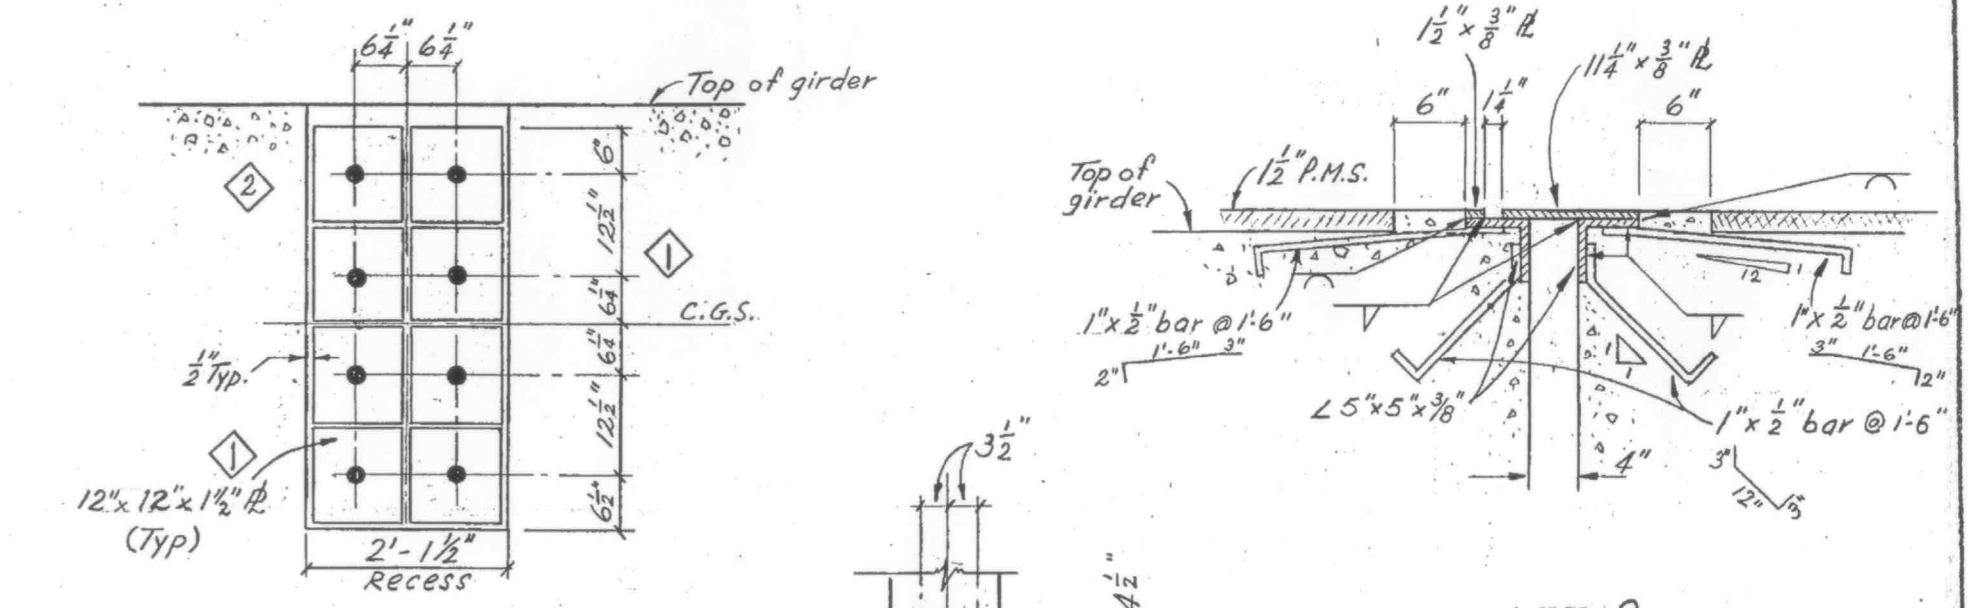 6 1/4" 6 1/4"
Top of girder
2
6"
12 1/2"
1
6 1/4"
C.G.S.
6 1/4"
1/2" Typ.
12 1/2"
1
12" x 12" x 1 1/2" ℄
(Typ)
6 1/2"
2'-1 1/2"
Recess
3 1/2"
4 1/2"
1 1/2" x 3/8" ℄
11 1/4" x 3/8" ℄
6"
1 1/4"
6"
Top of
girder
1 1/2" P.M.S.
12
1
1" x 1/2" bar @ 1'-6"
1'-6" 3"
2"
1" x 1/2" bar @ 1'-6"
3" 1'-6"
2"
1
1
∠ 5" x 5" x 3/8"
1" x 1/2" bar @ 1'-6"
4"
3"
12"
3"